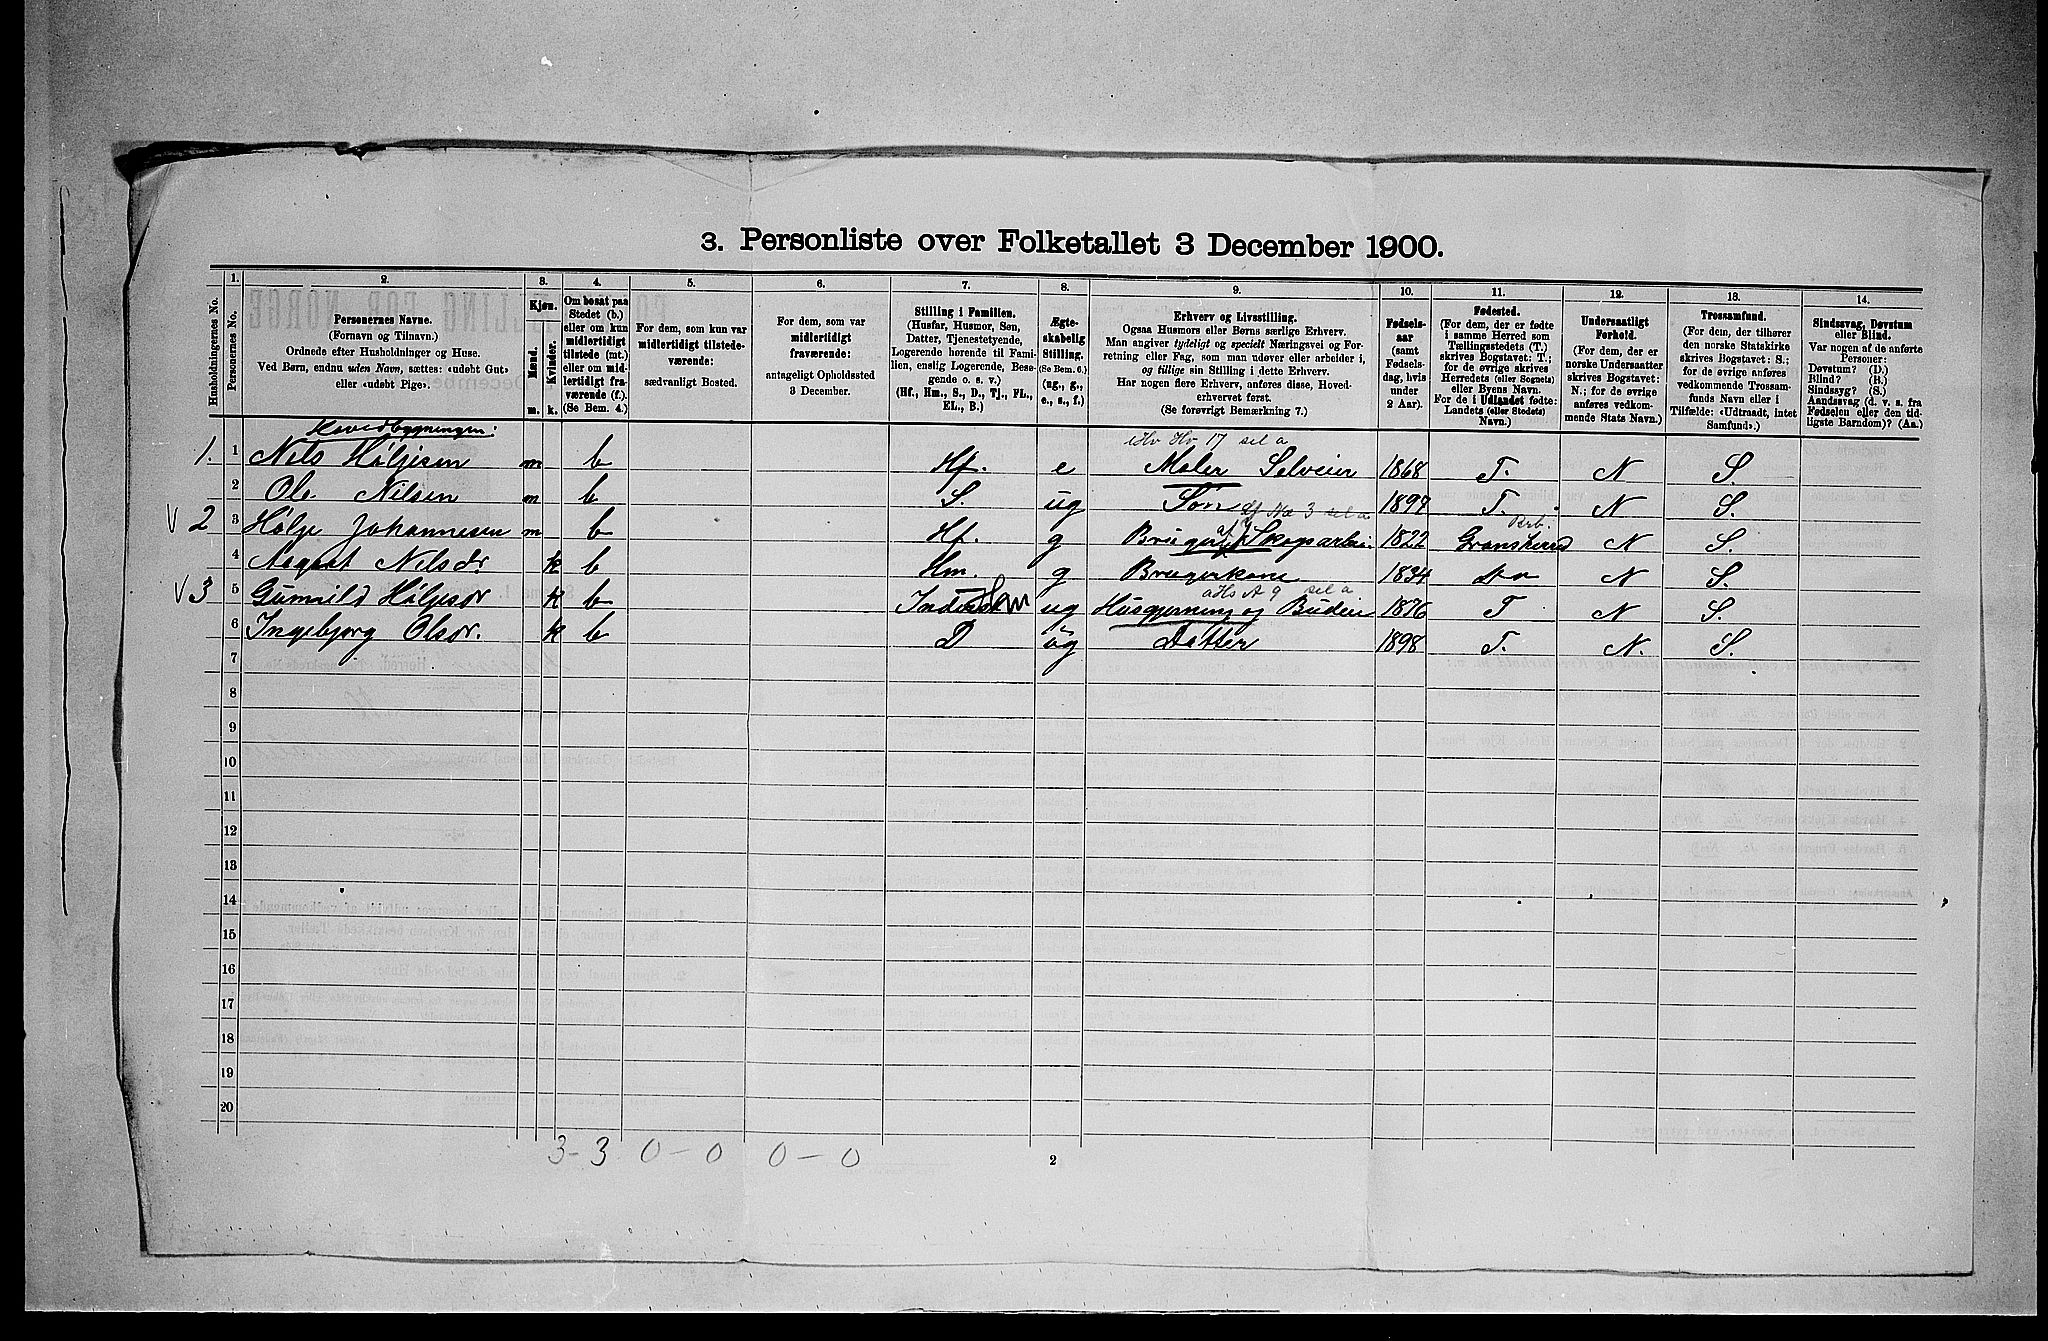 3. Personliste over Folketallet 3 December 1900.
Husholdningernes No.
1. Personernes No.
2. Personernes Navne. (Fornavn og Tilnavn.) Ordnede efter Husholdninger og Huse. Ved Børn, endnu uden Navn, sættes: «udøbt Gut» eller «udøbt Pige».
3. Kjøn. Mænd. m. Kvinder. k.
4. Om bosat paa Stedet (b.) eller om kun midlertidigt tilstede (mt.) eller om midlertidigt fraværende (f.). (Se Bem. 4.)
5. For dem, som kun var midlertidigt tilstedeværende: sædvanligt Bosted.
6. For dem, som var midlertidigt fraværende: antageligt Opholdssted 3 December.
7. Stilling i Familien. (Husfar, Husmor, Søn, Datter, Tjenestetyende, Logerende hørende til Familien, enslig Logerende, Besøgende o. s. v.) (Hf., Hm., S., D., Tj., FL., EL., B.)
8. Ægteskabelig Stilling. (Se Bem. 6.) (ug., g., e., s., f.)
9. Erhverv og Livsstilling. Ogsaa Husmors eller Børns særlige Erhverv. Man angiver tydeligt og specielt Næringsvei og Forretning eller Fag, som man udøver eller arbeider i, og tillige sin Stilling i dette Erhverv. Har nogen flere Erhverv, anføres disse, Hovederhvervet først. (Se forøvrigt Bemærkning 7.)
10. Fødselsaar (samt Fødselsdag, hvis under 2 Aar).
11. Fødested. (For dem, der er fødte i samme Herred som Tællingsstedets (T.) skrives Bogstavet: T.; for de øvrige skrives Herredets (eller Sognets) eller Byens Navn. For de i Udlandet fødte: Landets (eller Stedets) Navn.)
12. Undersaatligt Forhold. (For dem, der er norske Undersaatter skrives Bogstavet: N.; for de øvrige anføres vedkommende Stats Navn.)
13. Trossamfund. (For dem, der tilhører den norske Statskirke skrives Bogstavet: S.; for de øvrige anføres vedkommende Trossamfunds Navn eller i Tilfælde: «Udtraadt, intet Samfund».)
14. Sindssvag, Døvstum eller Blind. Var nogen af de anførte Personer: Døvstum? (D.) Blind? (B.) Sindssyg? (S.) Aandssvag (d. v. s. fra Fødselen eller den tidligste Barndom)? (Aa.)
Hovedbygningen:
1. 1 Nils Høljesen m b Hf. e Maler Selveier 1868 T. N S.
2 Ole Nilsen m b S. ug Søn 1897 T. N S.
2 3 Hølje Johannesen m b Hf. g Bruger Skogarbei. 1822 Gransherred N S.
4 Aagaat Nilsdr k b Hm. g Brugerkone 1834 Do N S.
3 5 Gunnild Høljesdr k b ug Husgjerning og Budeie 1876 T N S.
6 Ingebjørg Olsdr. k b D ug Datter 1898 T. N. S.
7
8
9
10
11
12
13
14
15
16
17
18
19
20
3-3 0-0 0-0
2